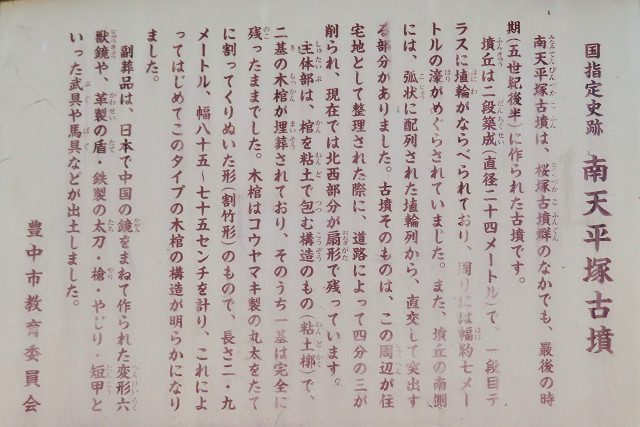 国指定史跡 南天平塚古墳
南天平塚古墳は、桜塚古墳群のなかでも、最後の時
期(五世紀後半)に作られた古墳です。
墳丘は二段築成(直径二十四メートル)で、一段目テ
ラスに埴輪がならべられており、周りには幅約七メー
トルの濠がめぐらされていました。また、墳丘の南側
には、弧状に配列された埴輪列から、直交して突出す
る部分がありました。古墳そのものは、この周辺が住
宅地として整理された際に、道路によって四分の三が
削られ、現在では北西部分が扇形で残っています。
主体部は、棺を粘土で包む構造のもの(粘土槨)で、
二基の木棺が埋葬されており、そのうち一基は完全に
残ったままでした。木棺はコウヤマキ製の丸太をたて
に割ってくりぬいた形(割竹形)のもので、長さ二・九
メートル、幅八十五~七十五センチを計り、これによ
ってはじめてこのタイプの木棺の構造が明らかになり
ました。
副葬品は、日本で中国の鏡をまねて作られた変形六
獣鏡や、革製の盾・鉄製の太刀・槍・やじり・短甲と
いった武具や馬具などが出土しました。
豊中市教育委員会